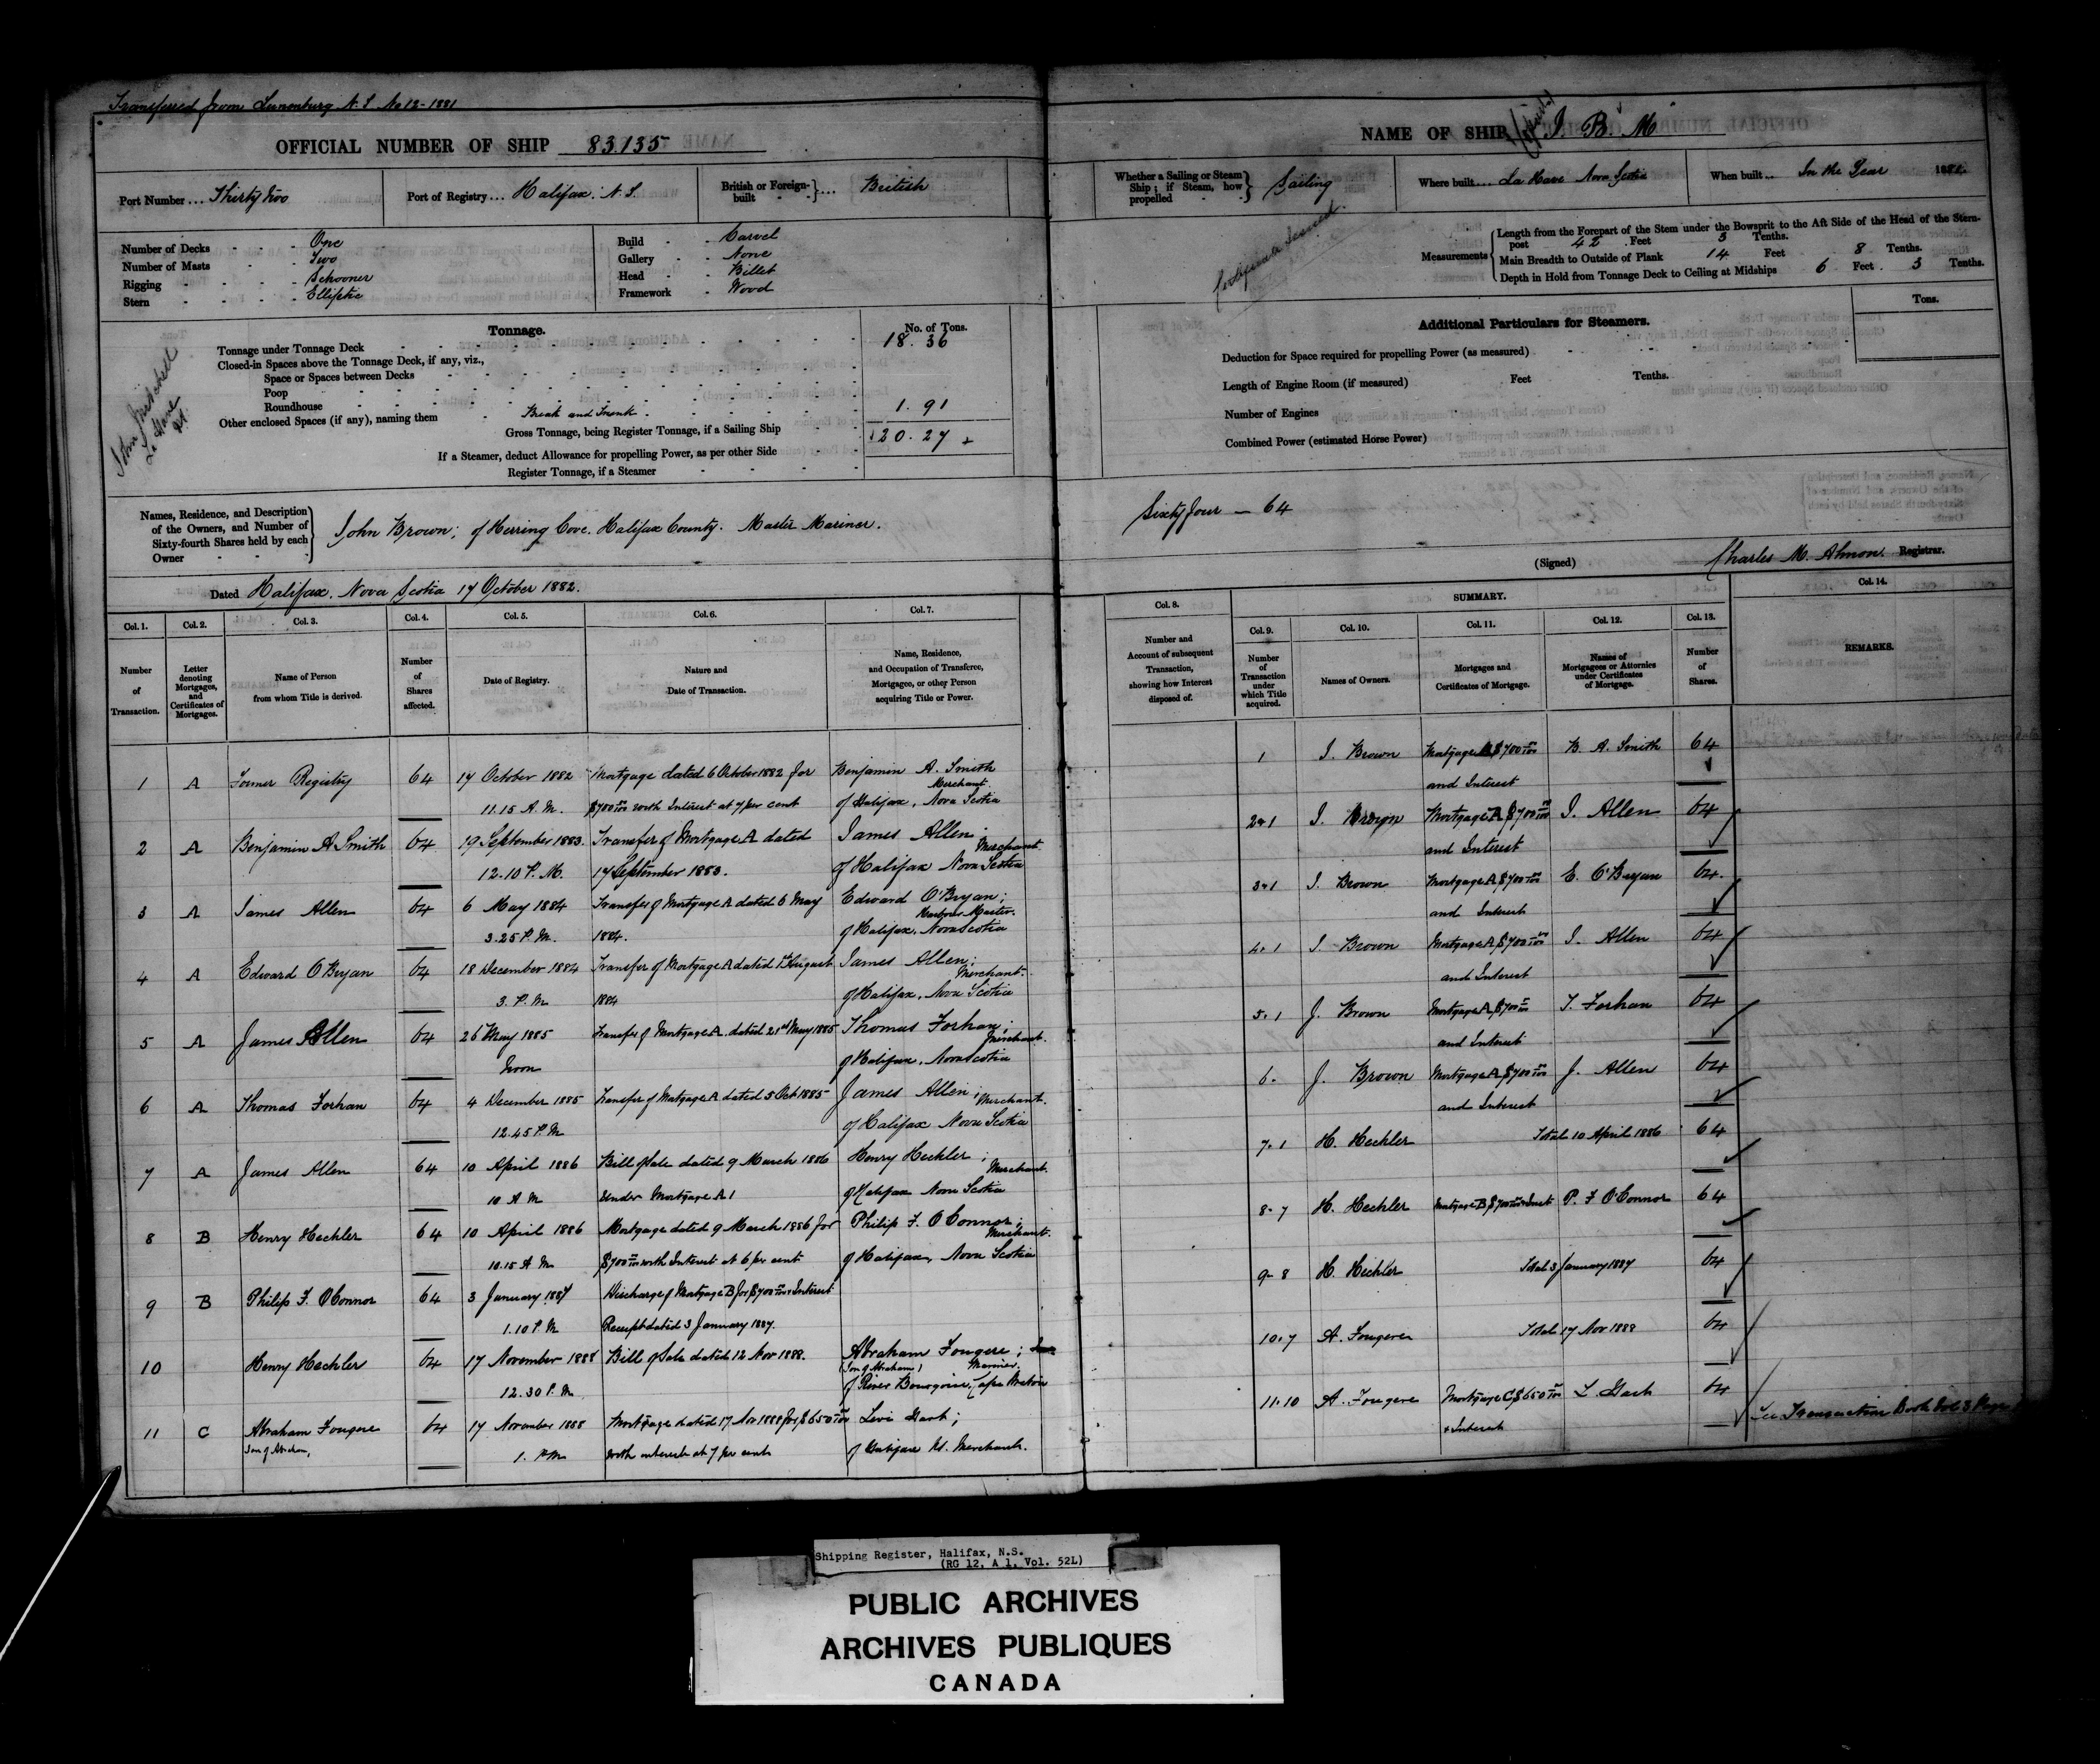 Transferred from Lunenburg N.S. No 12-1881
OFFICIAL NUMBER OF SHIP 83.135
Port Number ... Thirty two
Port of Registry ... Halifax. N.S.
British or Foreign-built } ... British
Number of Decks - One
Number of Masts - Two
Rigging - Schooner
Stern - Elliptic
Build - Carvel
Gallery - None
Head - Billet
Framework - Wood
Tonnage.
No. of Tons.
Tonnage under Tonnage Deck 18.36
Closed-in Spaces above the Tonnage Deck, if any, viz.,
Space or Spaces between Decks
Poop
Roundhouse
Other enclosed Spaces (if any), naming them Break and Trunk 1.91
Gross Tonnage, being Register Tonnage, if a Sailing Ship 20.27
If a Steamer, deduct Allowance for propelling Power, as per other Side
Register Tonnage, if a Steamer
John
La Have
Names, Residence, and Description of the Owners, and Number of Sixty-fourth Shares held by each Owner
John Brown; of Herring Cove. Halifax County. Master Mariner.
Dated Halifax. Nova Scotia 17 October 1882.
Col. 1. Col. 2. Col. 3. Col. 4. Col. 5. Col. 6. Col. 7.
Number of Transaction.
Letter denoting Mortgages, and Certificates of Mortgages.
Name of Person from whom Title is derived.
Number of Shares affected.
Date of Registry.
Nature and Date of Transaction.
Name, Residence, and Occupation of Transferee, Mortgagee, or other Person acquiring Title or Power.
1 A Former Registry 64 17 October 1882 Mortgage dated 6 October 1882 for Benjamin A. Smith
Merchant.
11.15 A.M. $700 with Interest at 7 per cent of Halifax, Nova Scotia
2 A Benjamin A Smith 64 19 September 1883. Transfer of Mortgage A dated James Allen.
Merchant
12.10 P.M. 17 September 1883. of Halifax Nova Scotia
3 A James Allen 64 6 May 1884 Transfer of Mortgage A dated 6 May Edward O'Bryan;
Harbour Master.
3.25 P.M. 1884. of Halifax, Nova Scotia
4 A Edward O'Bryan 64 18 December 1884 Transfer of Mortgage A dated August James Allen;
Merchant.
3. P.M 1884 of Halifax, Nova Scotia
5 A James Allen 64 26 May 1885 Transfer of Mortgage A. dated 21st May 1885 Thomas Forhan;
Merchant.
Noon of Halifax, Nova Scotia
6 A Thomas Forhan 64 4 December 1885 Transfer of Mortgage A dated 5 Oct 1885 James Allen;
Merchant.
12.45 P.M of Halifax Nova Scotia
7 A James Allen 64 10 April 1886 Bill of Sale dated 9 March 1886 Henry Hechler;
Merchant.
10 A.M Under Mortgage A 1 of Halifax Nova Scotia
8 B Henry Hechler 64 10 April 1886 Mortgage dated 9 March 1886 for Philip F. O'Connor;
Merchant.
10.15 A M $700 with Interest at 6 per cent of Halifax, Nova Scotia
9 B Philip F. O'Connor 64 3 January 1887 Discharge of Mortgage B for $700 + Interest
1.10 P.M Receipt dated 3 January 1887.
10 Henry Hechler 64 17 November 1888 Bill of Sale dated 12 Nov 1888. Abraham Fougere;
(Son of Abraham) Mariner.
12.30 P.M of River Bourgoise, Cape Breton
11 C Abraham Fougere 64 17 November 1888 Mortgage dated 17 Nov 1888 for $650 Levi Hart;
Son of Abraham,
1. PM with interest at 7 per cent of Halifax NS. Merchant.
NAME OF SHIP J. B. M
Whether a Sailing or Steam Ship; if Steam, how propelled } Sailing
Where built ... La Have Nova Scotia
When built ... In the Year
Measurements
Length from the Forepart of the Stem under the Bowsprit to the Aft Side of the Head of the Stern-
post 42 Feet 3 Tenths.
Main Breadth to Outside of Plank 14 Feet 8 Tenths.
Depth in Hold from Tonnage Deck to Ceiling at Midships 6 Feet 3 Tenths.
Additional Particulars for Steamers.
Tons.
Deduction for Space required for propelling Power (as measured)
Length of Engine Room (if measured) Feet Tenths.
Number of Engines
Combined Power (estimated Horse Power)
Sixty four — 64
(Signed) Charles M. Almon Registrar.
Col. 8. SUMMARY. Col. 14.
Col. 9. Col. 10. Col. 11. Col. 12. Col. 13.
Number and Account of subsequent Transaction, showing how Interest disposed of.
Number of Transaction under which Title acquired.
Names of Owners.
Mortgages and Certificates of Mortgage.
Names of Mortgagees or Attornies under Certificates of Mortgage.
Number of Shares.
REMARKS.
1 J. Brown Mortgage A $700 B. A. Smith 64
and Interest
2.1 J. Brown Mortgage A $700 J. Allen 64
and Interest
3.1 J. Brown Mortgage A $700 E. O'Bryan 64
and Interest
4.1 J. Brown Mortgage A $700 J. Allen 64
and Interest
5.1 J. Brown Mortgage A $700 T. Forhan 64
and Interest
6. J. Brown Mortgage A $700 J. Allen 64
and Interest
7.1 H. Hechler Total 10 April 1886 64
8.7 H. Hechler Mortgage B $700 + Inest P. F O'Connor 64
9.8 H. Hechler Total 3 January 1887 64
10.7 A. Fougere Total 17 Nov 1888 64
11.10 A. Fougere Mortgage C $650 L. Hart 64
+ Interest
See Transaction Book Vol 3 Page
Shipping Register, Halifax, N.S.
(RG 12, A 1, Vol. 52L)
PUBLIC ARCHIVES
ARCHIVES PUBLIQUES
CANADA